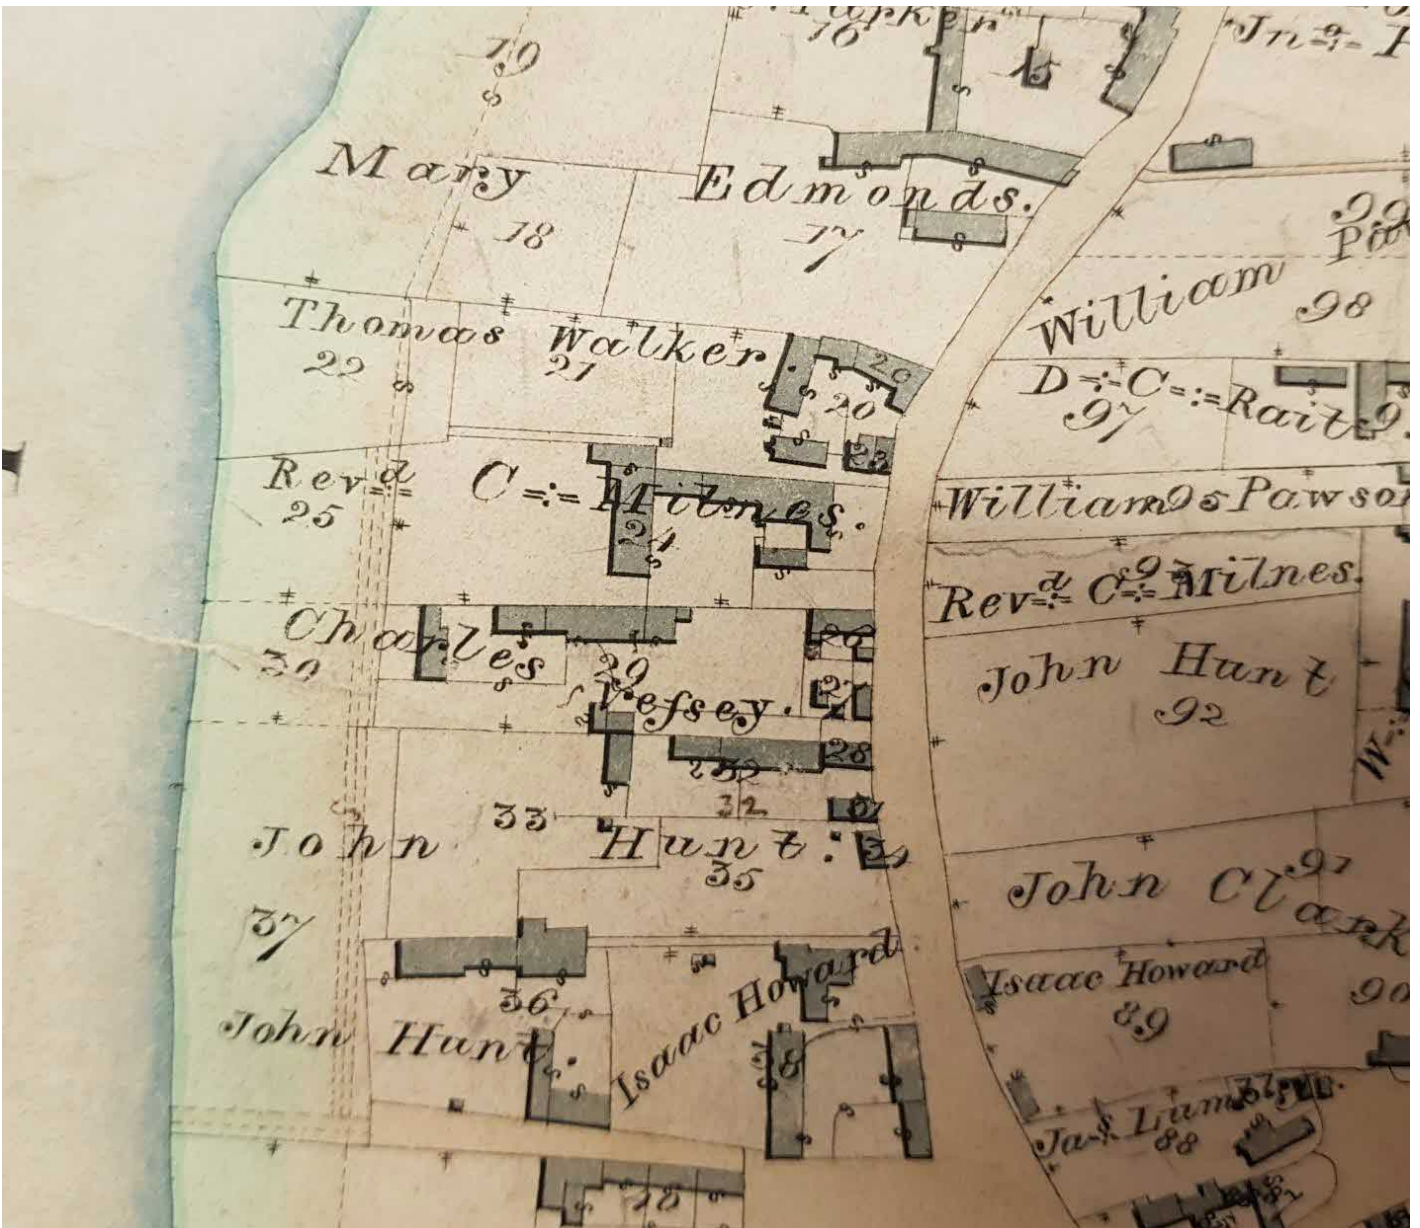 Parker
16
15
Jn=o=
19
Mary Edmonds.
18
17
99
William
98
Thomas Walker
22
21
20
20
23
D=:=C=:=Rait
97
Revd=:= C=:=Milnes.
25
24
William 95 Pawson
Revd=:= C=:=Milnes.
John Hunt
92
Charles Vefsey.
30
29
26
27
28
32
32
33
31
34
John Hunt.
35
37
John Clark
91
36
John Hunt.
Isaac Howard
38
Isaac Howard
89
90
Jas
88